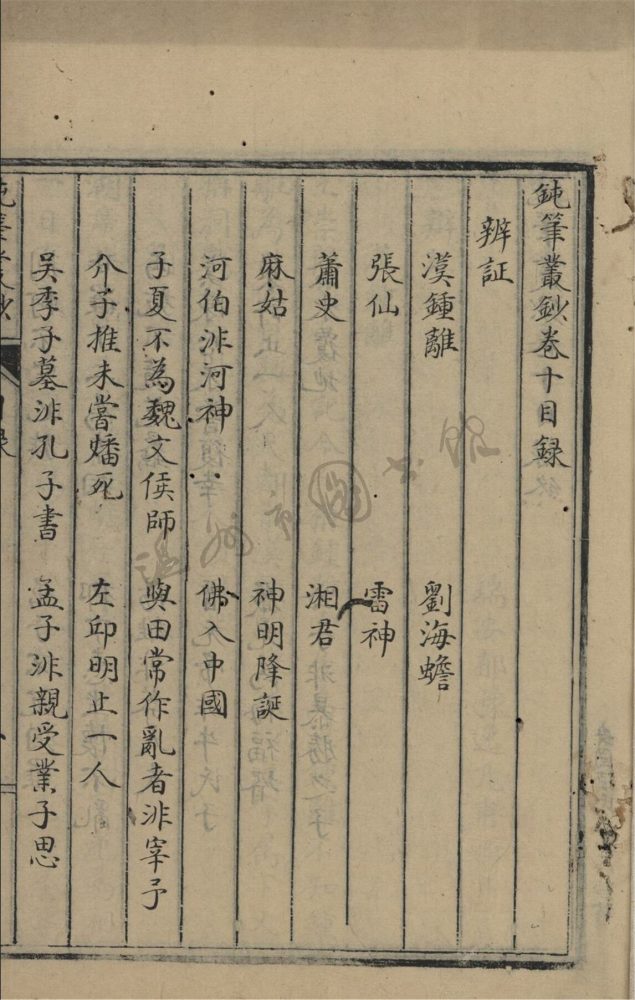 鈍筆叢鈔卷十目録
辨証
漢鍾離　劉海蟾
張仙　雷神
蕭史　湘君
麻姑　神明降誕
河伯非河神　佛入中國
子夏不為魏文侯師　與田常作亂者非宰予
介子推未嘗燔死　左邱明止一人
吳季子墓非孔子書　孟子非親受業子思
温州市图书馆